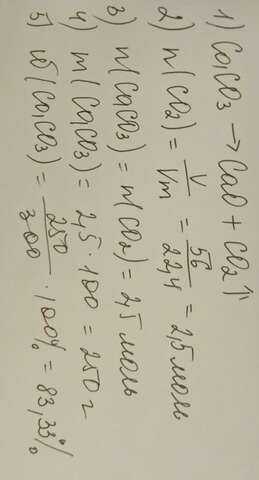 1) CaCO₃ → CaO + CO₂↑
2) n(CO₂) = V/Vm = 56/22,4 = 2,5 моль
3) n(CaCO₃) = n(CO₂) = 2,5 моль
4) m(CaCO₃) = 2,5 · 100 = 250 г
5) ω(CaCO₃) = 250/300 · 100% = 83,33%